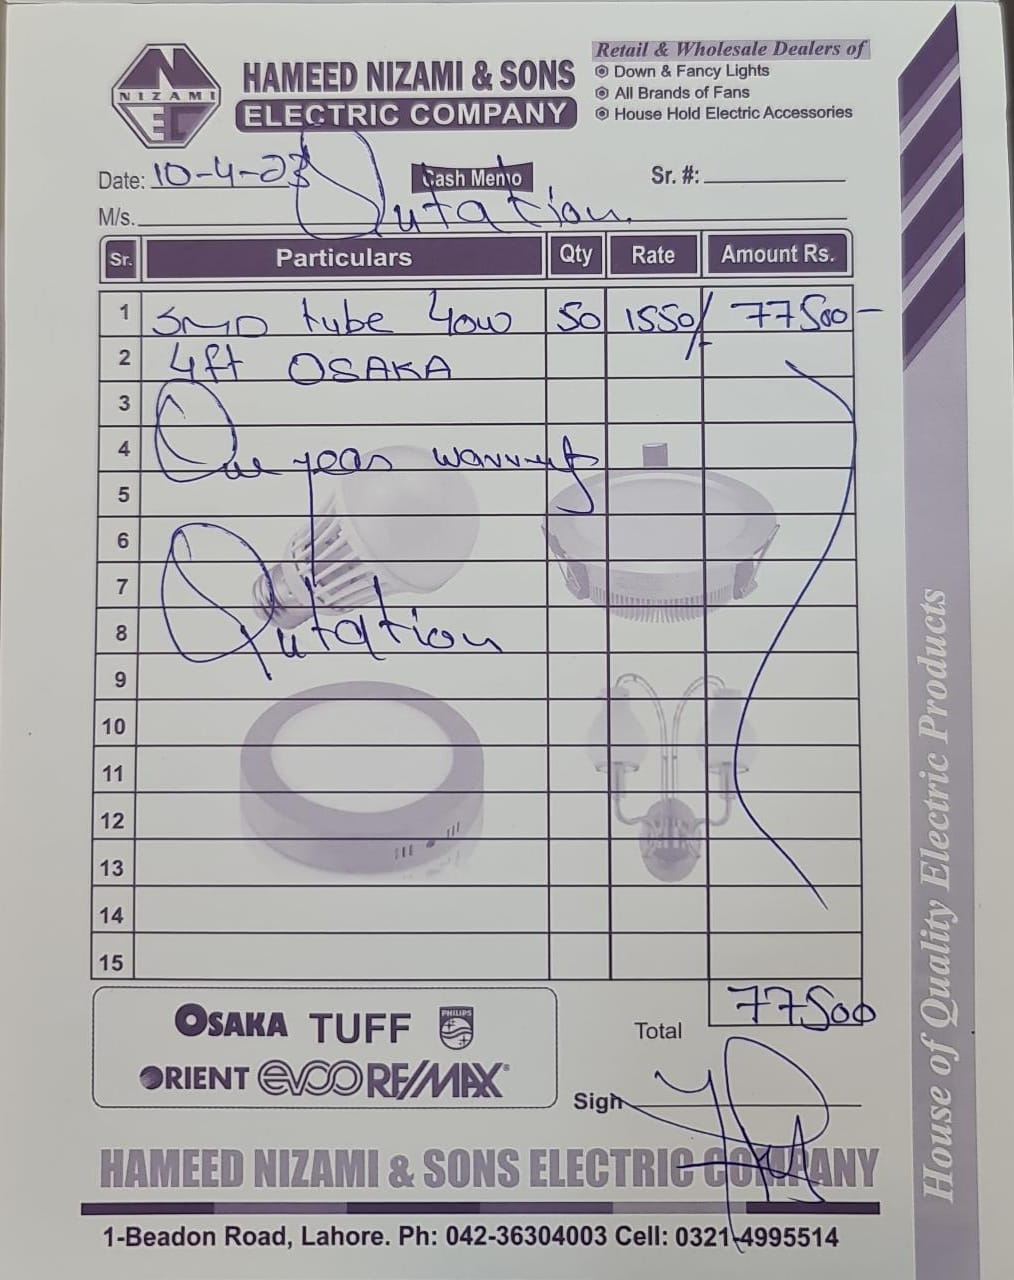 NIZAMI
HAMEED NIZAMI & SONS
ELECTRIC COMPANY
Retail & Wholesale Dealers of
Down & Fancy Lights
All Brands of Fans
House Hold Electric Accessories
Date: 10-4-23
Cash Memo
Sr. #:
M/s. Qutation.
Sr. Particulars Qty Rate Amount Rs.
1 SMD tube 40w 50 1550/- 77500-
2 4ft OSAKA
3
4 One year warranty
5
6
7
8 Qutation
9
10
11
12
13
14
15
Total 77500
OSAKA TUFF PHILIPS
ORIENT evco RE/MAX
Sign
HAMEED NIZAMI & SONS ELECTRIC COMPANY
1-Beadon Road, Lahore. Ph: 042-36304003 Cell: 0321-4995514
House of Quality Electric Products